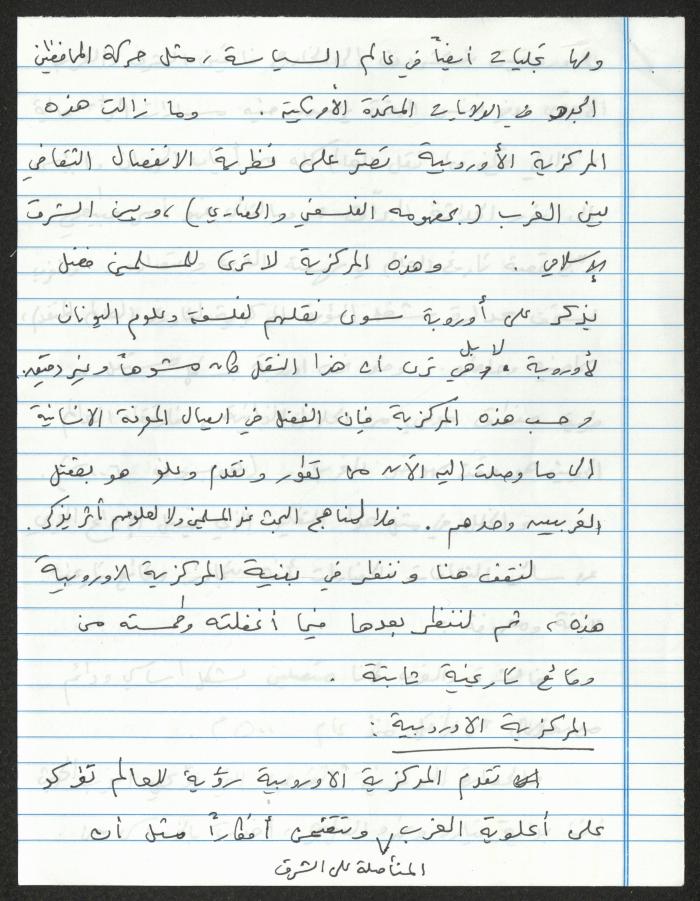 ولها تجليات أيضاً في عالم السياسة، مثل حركة المحافظين
الجدد في الولايات المتحدة الأمريكية. وما زالت هذه
المركزية الأوروبية تصرّ على نظرية الانفصال الثقافي
بين الغرب (بمفهومه الفلسفي والحضاري)، وبين الشرق
الإسلامي. وهذه المركزية لا ترى للمسلمين فضل
يذكر على أوروبة سوى نقلهم لفلسفة وعلوم اليونان
لأوروبة. لا بل وهي ترى أن هذا النقل كان مشوهاً وغير دقيق.
وحسب هذه المركزية فإن الفضل في ايصال المعرفة الانسانية
الى ما وصلت اليه الآن من تطور وتقدم وعلو هو بفضل
الغربيين وحدهم. فلا لمناهج البحث عند المسلمين ولا لعلومهم أثر يذكر.
لنقف هنا وننظر في بنية المركزية الاوروبية
هذه، ثم لننظر بعدها فيما أغفلته وطمسته من
وقائع تاريخية ثابتة.
المركزية الاوروبية:
تقدم المركزية الاوروبية رؤية للعالم تؤكد
على أعلوية الغرب المتأصلة على الشرق وتتضمن أفكاراً مثل أن